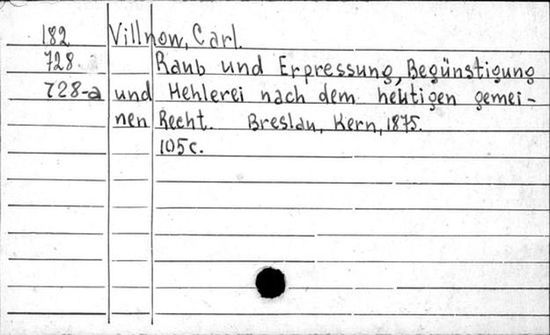 182 Villnow, Carl.
728 Raub und Erpressung, Begünstigung
728-a und Hehlerei nach dem heutigen gemei-
nen Recht. Breslau, Kern, 1875.
105 c.